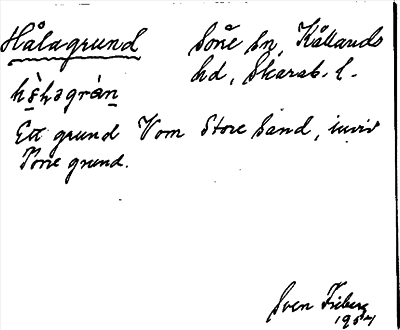 Hålagrund Sone sn, Kållands
hd, Skarab. l.
Ett grund Vom Store sand, invid
Torre grund.
Sven Fröberg